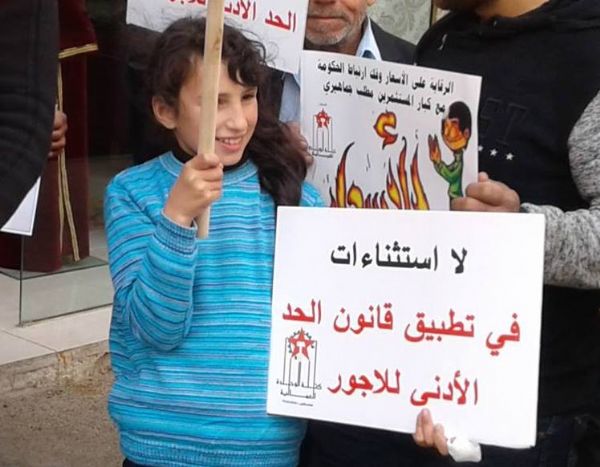 الحد الأدنى للاجور
الرقابة على الأسعار وفك ارتباط الحكومة
مع كبار المستثمرين مطلب جماهيري
الأسعار
لا استثناءات
في تطبيق قانون الحد
الأدنى للاجور
كتلة الوحدة
العمالية